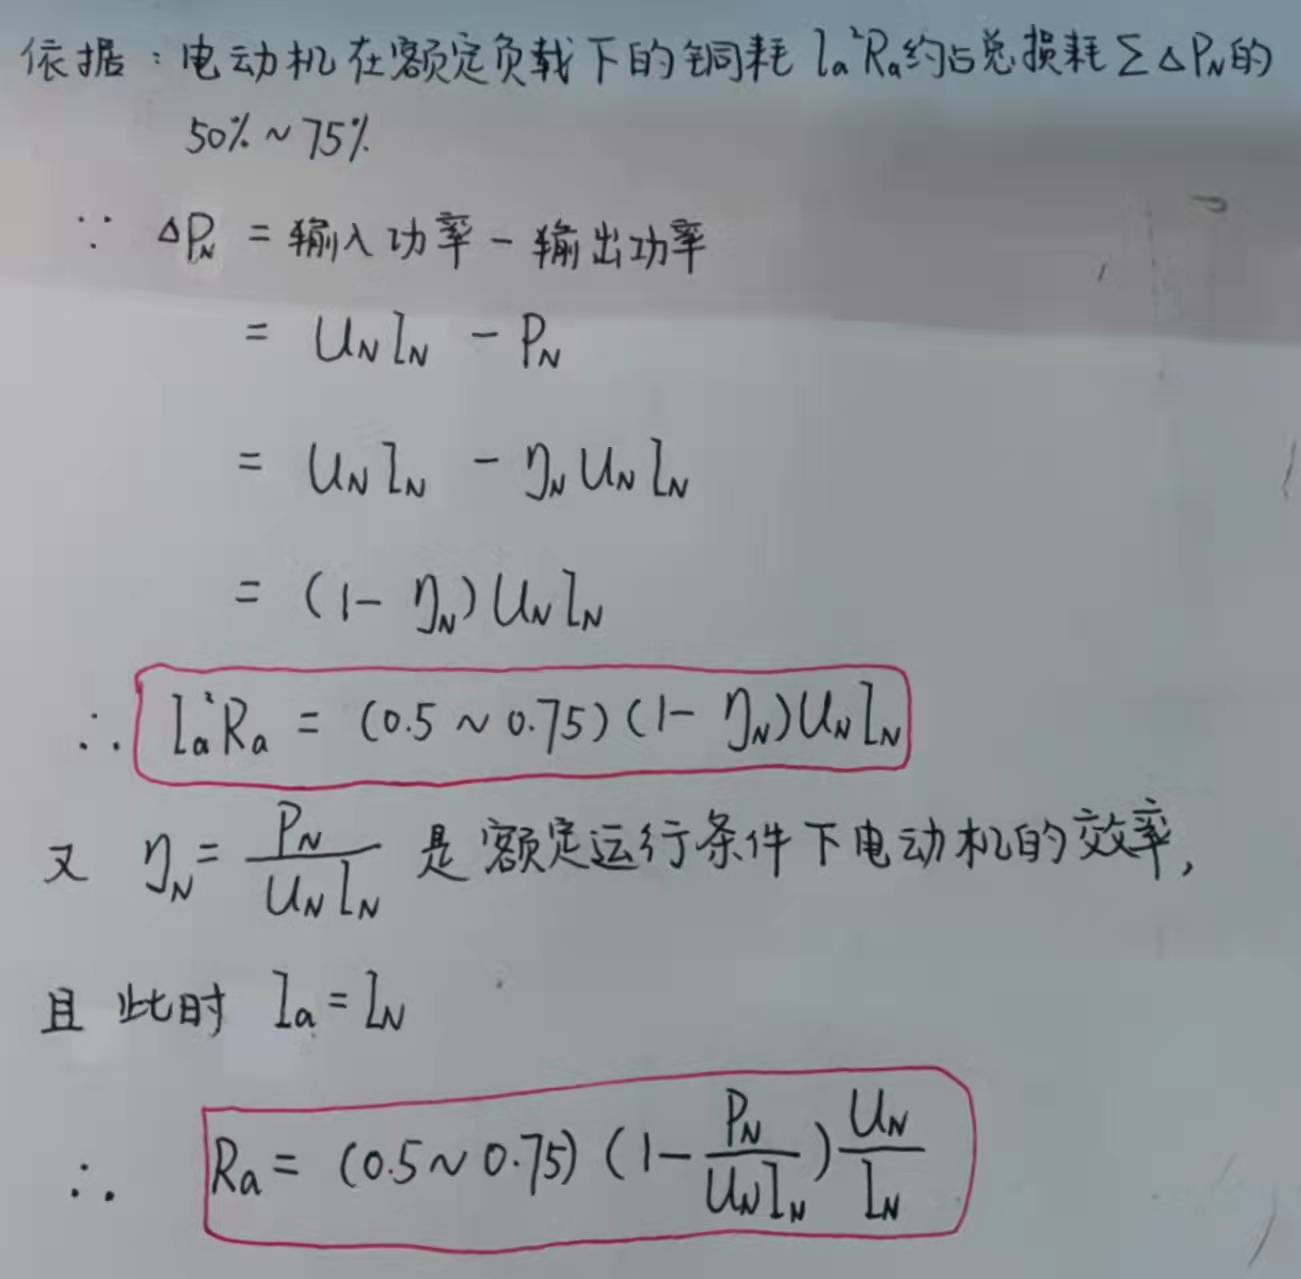 依据：电动机在额定负载下的铜耗 Iₐ²Rₐ约占总损耗∑ΔP_N的
50%~75%
∵ ΔP_N = 输入功率 - 输出功率
= U_N I_N - P_N
= U_N I_N - η_N U_N I_N
= (1 - η_N) U_N I_N
∴ Iₐ²Rₐ = (0.5 ~ 0.75)(1 - η_N) U_N I_N
又 η_N = P_N / (U_N I_N) 是额定运行条件下电动机的效率,
且 此时 Iₐ = I_N
∴ Rₐ = (0.5 ~ 0.75) (1 - P_N / (U_N I_N)) U_N / I_N